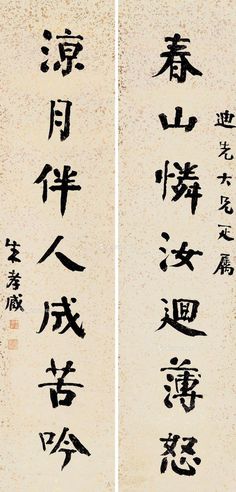 迪先大兄正属
春山憐汝迴薄怒
涼月伴人成苦吟
朱孝臧